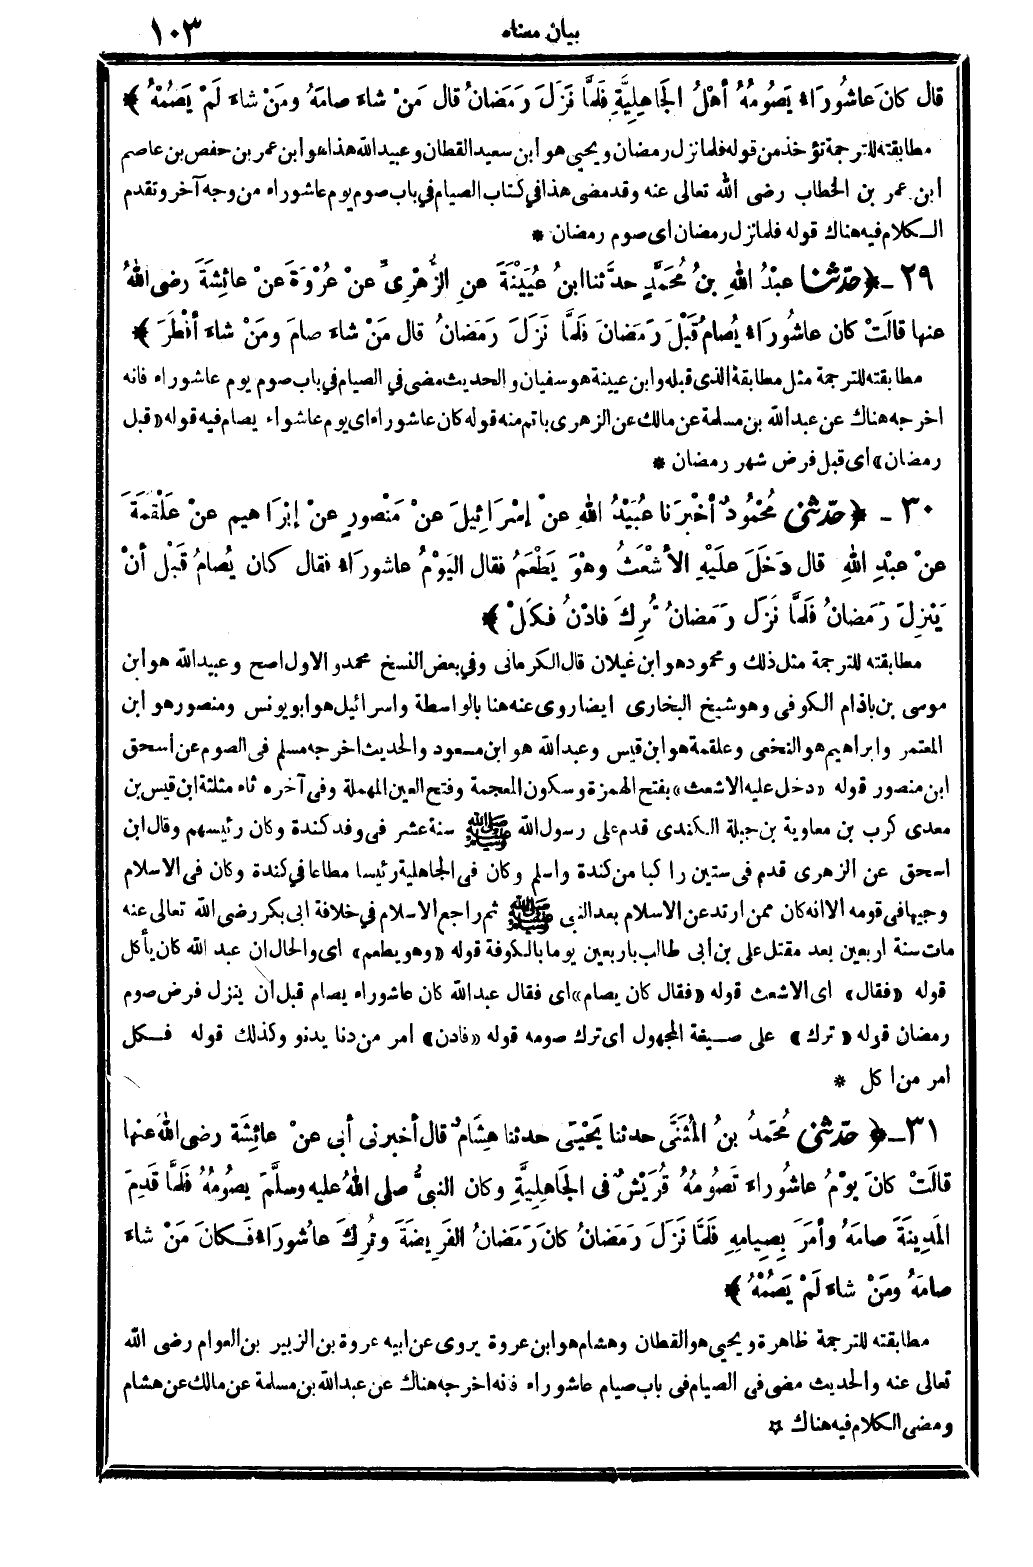 بيان معناه ١٠٣
قال كانَ عاشُورَاءُ يَصُومُهُ أهْلُ الجَاهِلِيَّةِ فَلَمَّا نَزَلَ رَمَضانُ قال مَنْ شاءَ صامَهُ ومَنْ شاءَ لَمْ يَصُمْهُ ﴾
مطابقته للترجمة تؤخذ من قوله فلما نزل رمضان ويحيى هو ابن سعيد القطان وعبيد الله هذا هو ابن عمر بن حفص بن عاصم
ابن عمر بن الخطاب رضى الله تعالى عنه وقد مضى هذا في كتاب الصيام في باب صوم يوم عاشوراء من وجه آخر وتقدم
الـكلام فيه هناك قوله فلما نزل رمضان اى صوم رمضان *
٢٩ - ﴿ حدّثنا عبْدُ اللهِ بنُ مُحَمَّدٍ حدَّثنا ابنُ عُيَيْنَةَ عنِ الزُّهْرِىِّ عنْ عُرْوَةَ عنْ عائِشَةَ رضى اللهُ
عنها قالَتْ كان عاشُورَاءُ يُصامُ قَبْلَ رَمَضانَ فَلَمَّا نَزَلَ رَمَضانُ قال مَنْ شاءَ صامَ ومَنْ شاءَ أفْطَرَ ﴾
مطابقته للترجمة مثل مطابقة الذى قبله وابن عيينة هو سفيان والحديث مضى في الصيام في باب صوم يوم عاشوراء فانه
اخرجه هناك عن عبد الله بن مسلمة عن مالك عن الزهرى باتم منه قوله كان عاشوراء اى يوم عاشواء يصام فيه قوله «قبل
رمضان» اى قبل فرض شهر رمضان *
٣٠ - ﴿ حدّثنى مُحْمُودٌ أخْبرَنا عُبَيْدُ اللهِ عنْ إسْرَائِيلَ عنْ مَنْصورٍ عنْ إبْرَاهيم عنْ عَلْقَمَةَ
عنْ عبْدِ اللهِ قال دَخَلَ علَيْهِ الأشْعَثُ وهْوَ يَطْعَمُ فقال اليَوْمُ عاشورَاءُ فقال كان يُصامُ قَبْل أنْ
يَنْزِلَ رَمَضانُ فَلَمَّا نَزَلَ رَمَضانُ تُرِكَ فادْنُ فكَلْ ﴾
مطابقته للترجمة مثل ذلك ومحمود هو ابن غيلان قال الكرمانى وفي بعض النسخ محمد والاول اصح وعبيد الله هو ابن
موسى بن باذام الكوفى وهو شيخ البخارى ايضا روى عنه هنا بالواسطة واسرائيل هو ابو يونس ومنصور هو ابن
المعتمر وابراهيم هو النخعى وعلقمة هو ابن قيس وعبد الله هو ابن مسعود والحديث اخرجه مسلم فى الصوم عن اسحق
ابن منصور قوله «دخل عليه الاشعث» بفتح الهمزة وسكون المعجمة وفتح العين المهملة وفى آخره ثاء مثلثة ابن قيس بن
معدى كرب بن معاوية بن جبلة الكندى قدم على رسول الله ﷺ سنة عشر فى وفد كندة وكان رئيسهم وقال ابن
اسحق عن الزهرى قدم فى ستين راكبا من كندة واسلم وكان فى الجاهلية رئيسا مطاعا في كندة وكان فى الاسلام
وجيها فى قومه الا انه كان ممن ارتد عن الاسلام بعد النبى ﷺ ثم راجع الاسلام في خلافة ابى بكر رضى الله تعالى عنه
مات سنة اربعين بعد مقتل على بن أبى طالب باربعين يوما بالكوفة قوله «وهو يطعم» اى والحال ان عبد الله كان يأكل
قوله «فقال» اى الاشعث قوله «فقال كان يصام» اى فقال عبد الله كان عاشوراء يصام قبل أن ينزل فرض صوم
رمضان قوله «ترك» على صـيغة المجهول اى ترك صومه قوله «فادن» امر من دنا يدنو وكذلك قوله فـكل
امر من اكل *
٣١ - ﴿ حدّثنى مُحَمدُ بنُ المُثَنَّى حدثنا يَحْيَى حدثنا هِشَامٌ قال أخبرنى أبى عنْ عائِشَة رضى اللهُ عنها
قالَتْ كانَ يوْمُ عاشُوراءَ تَصُومُهُ قُرَيْشٌ فى الجَاهِلِيَّةِ وكان النبىُّ صلى اللهُ عليه وسلَّمَ يصُومُهُ فَلَمَّا قَدِمَ
المَدِينَةَ صامَهُ وأمَرَ بِصِيامِهِ فَلَمَّا نَزَلَ رَمَضانُ كانَ رَمَضانُ الفَرِيضَةَ وتُرِكَ عاشُورَاءُ فَـكانَ مَنْ شاءَ
صامَهُ ومَنْ شاءَ لَمْ يَصُمْهُ ﴾
مطابقته للترجمة ظاهرة ويحيى هو القطان وهشام هو ابن عروة يروى عن ابيه عروة بن الزبير بن العوام رضى الله
تعالى عنه والحديث مضى فى الصيام فى باب صيام عاشوراء فانه اخرجه هناك عن عبد الله بن مسلمة عن مالك عن هشام
ومضى الكلام فيه هناك *